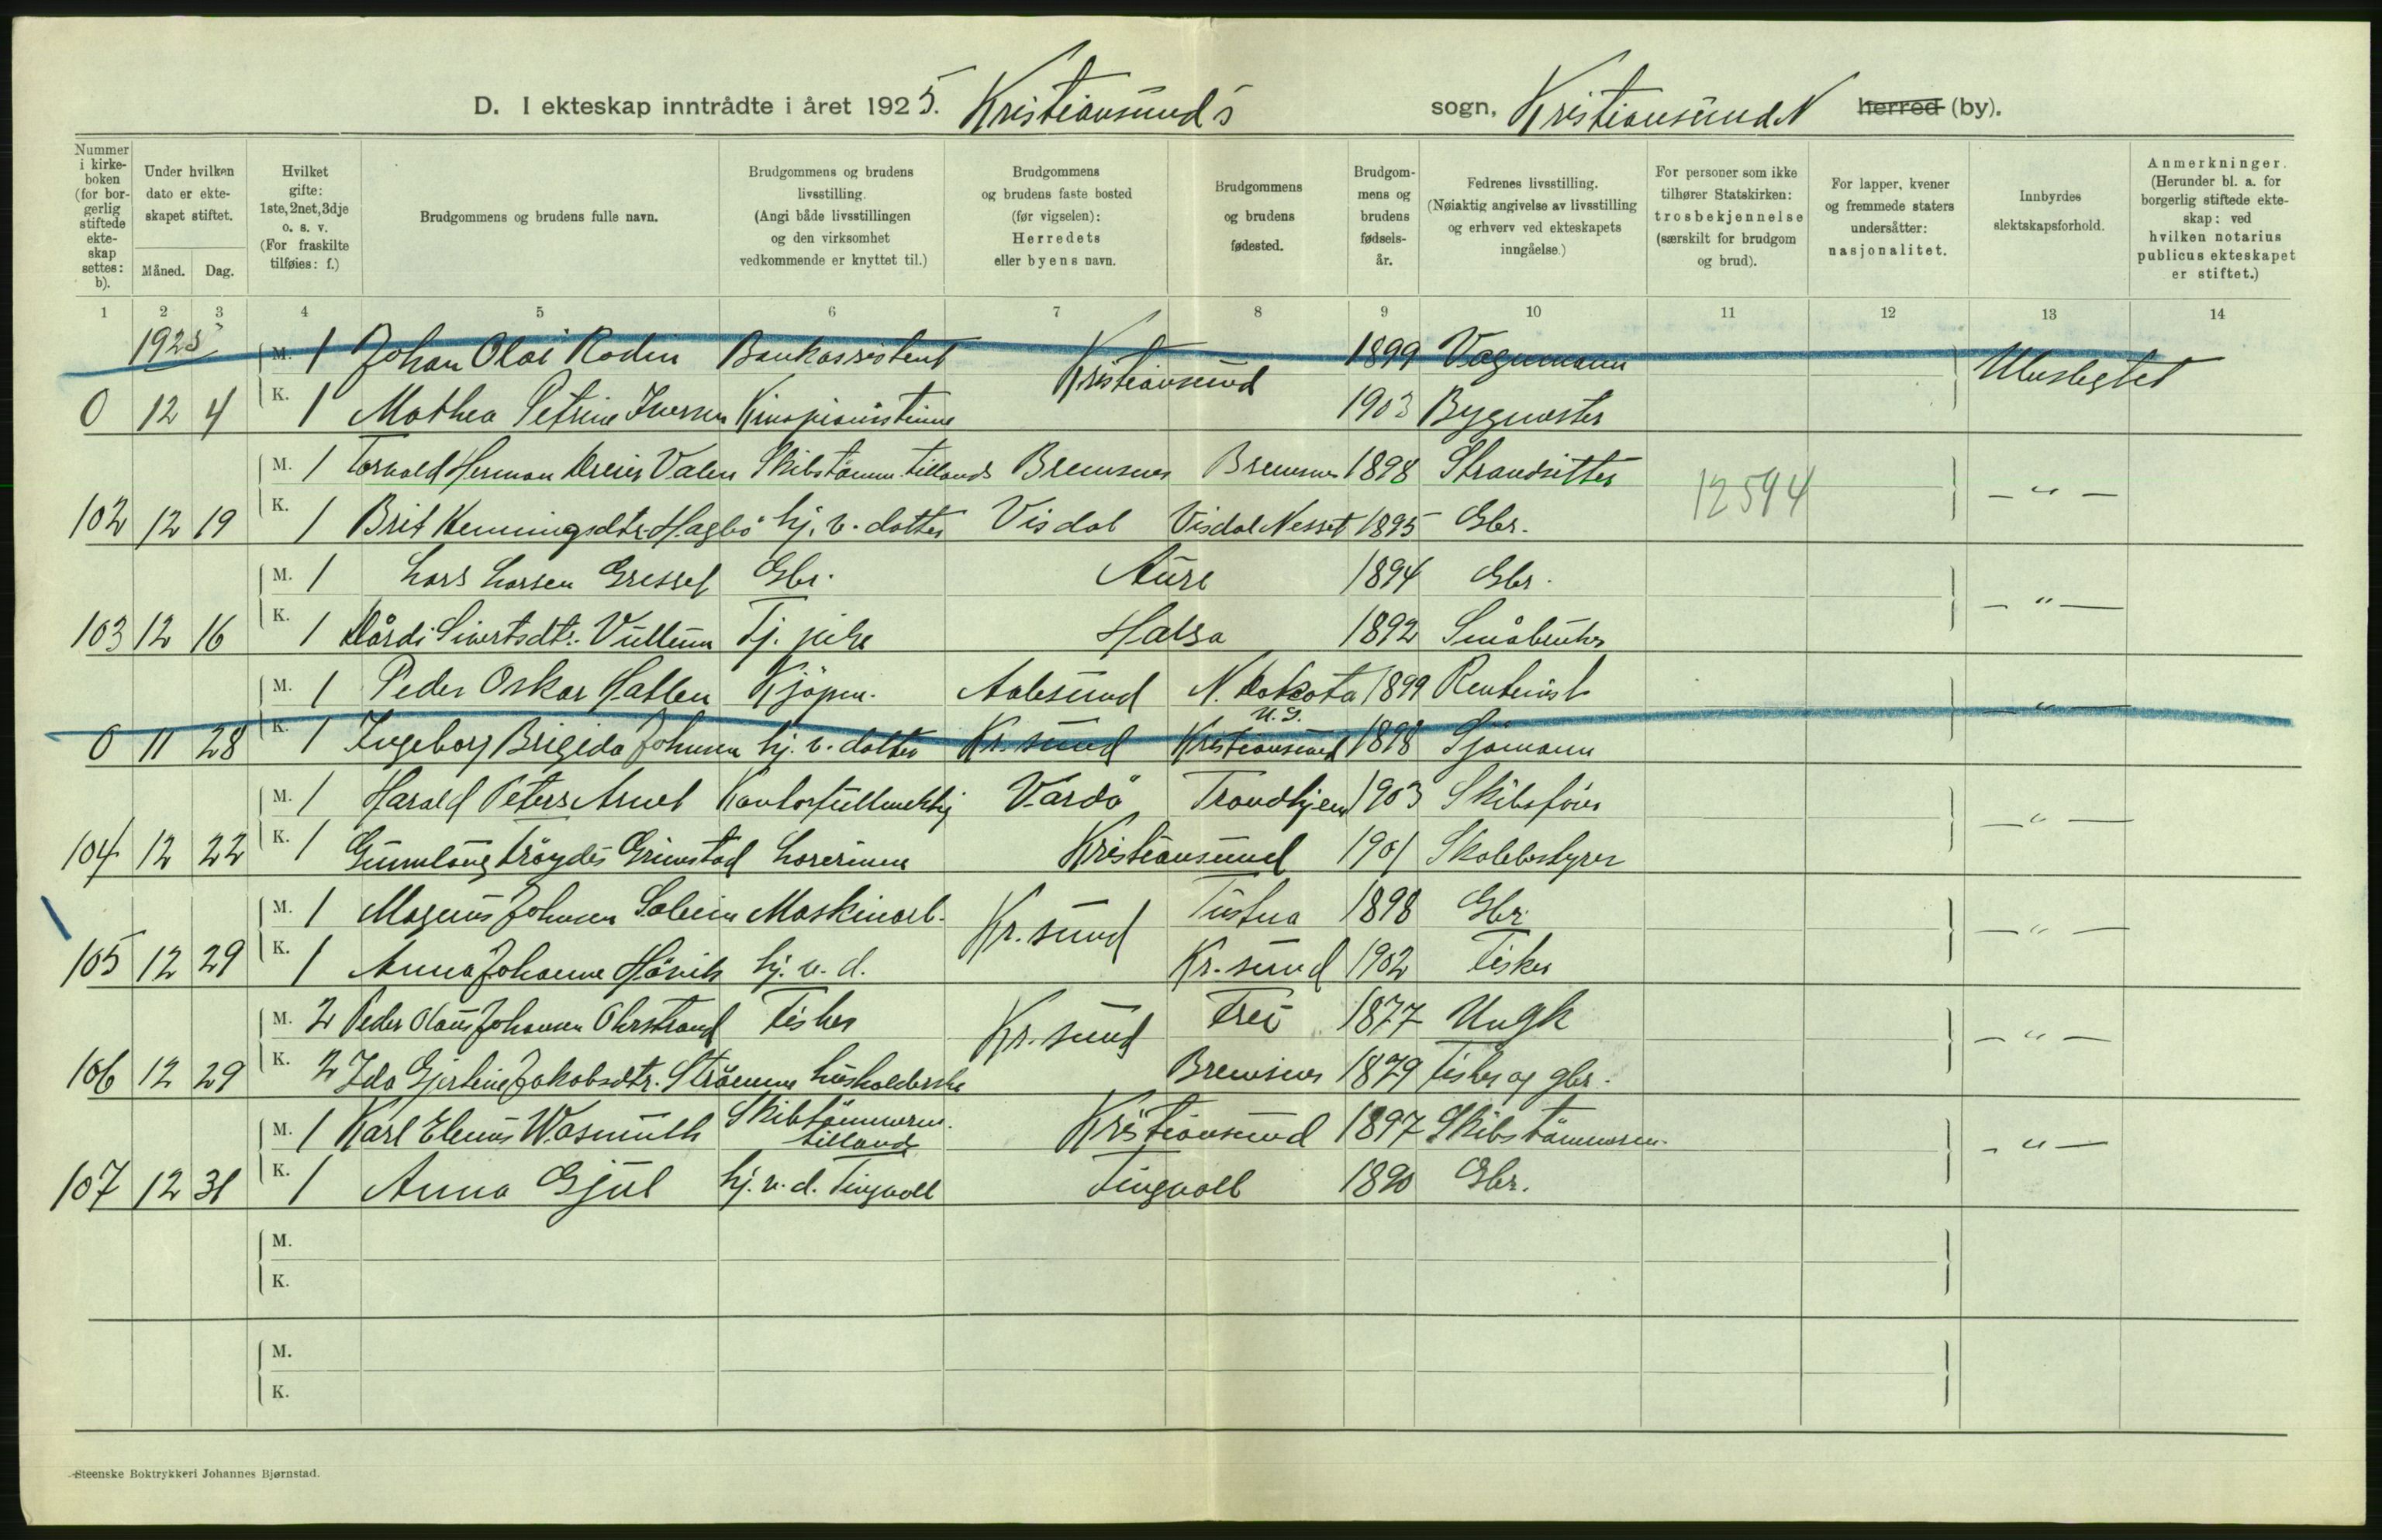 D. I ekteskap inntrådte i året 1925. Kristiansund's sogn, Kristiansund N herred (by).
Nummer i kirke- boken (for bor- gerlig stiftede ekte- skap settes: b).
Under hvilken dato er ekte- skapet stiftet.
Måned. Dag.
Hvilket gifte: 1ste, 2net, 3dje o. s. v. (For fraskilte tilføies: f.)
Brudgommens og brudens fulle navn.
Brudgommens og brudens livsstilling. (Angi både livsstillingen og den virksomhet vedkommende er knyttet til.)
Brudgommens og brudens faste bosted (før vigselen): Herredets eller byens navn.
Brudgommens og brudens fødested.
Brudgom- mens og brudens fødsels- år.
Fedrenes livsstilling. (Nøiaktig angivelse av livsstilling og erhverv ved ekteskapets inngåelse.)
For personer som ikke tilhører Statskirken: trosbekjennelse (særskilt for brudgom og brud).
For lapper, kvener og fremmede staters undersåtter: nasjonalitet.
Innbyrdes slektskapsforhold.
Anmerkninger. (Herunder bl. a. for borgerlig stiftede ekte- skap: ved hvilken notarius publicus ekteskapet er stiftet.)
1 2 3 4 5 6 7 8 9 10 11 12 13 14
1925
M. 1 Johan Olai Rodin Bankassistent Kristiansund 1899 Vognmann Ubeslegtet
0 12 4 K. 1 Mathea Petrine Iversen Kinopianistinne 1903 Bygmester
M. 1 Torvald Herman Dreier Valen Skibstømm. tillands Bremsnes Bremsnes 1898 Strandsitter 12594 — " —
102 12 19 K. 1 Brit Henningsdtr. Hagbø hj. v. datter Visdal Visdal Nesset 1895 Gbr.
M. 1 Lars Larsen Gresset Gbr. Aure 1894 Gbr. — " —
103 12 16 K. 1 Mårdi Sivertsdtr. Vullum Tj. pike Halsa 1892 Småbruker
M. 1 Peder Oskar Hatlen Kjøpm. Aalesund N. Dakota U.S. 1899 Rentenist — " —
0 11 28 K. 1 Ingeborg Brigida Johnsen hj. v. datter Kr. sund Kristiansund 1898 Sjømann
M. 1 Harald Peters Arnet Kontorfullmektig Vardø Trondhjem 1903 Skibsfører — " —
104 12 22 K. 1 Gunnlaug Frøydis Grimstad Lærerinne Kristiansund 1901 Skolebestyrer
M. 1 Magnus Johnsen Soleim Maskinarb. Kr. sund Tustna 1898 Gbr. — " —
105 12 29 K. 1 Anna Johanne Høvik hj. v. d. Kr. sund 1902 Fisker
M. 2 Peder Olaus Johansen Ohrstrand Fisker Kr. sund Frei 1877 Ungk — " —
106 12 29 K. 2 Ida Gjertine Jakobsdtr. Strømme husholderske Bremsnes 1879 Fisker og gbr.
M. 1 Karl Elenus Wasmuth Skibtømmerm. tillands Kristiansund 1897 Skibstømmerm. — " —
107 12 31 K. 1 Anna Gjul hj. v. d. Tingvoll Tingvoll 1890 Gbr.
M.
K.
M.
K.
Steenske Boktrykkeri Johannes Bjørnstad.